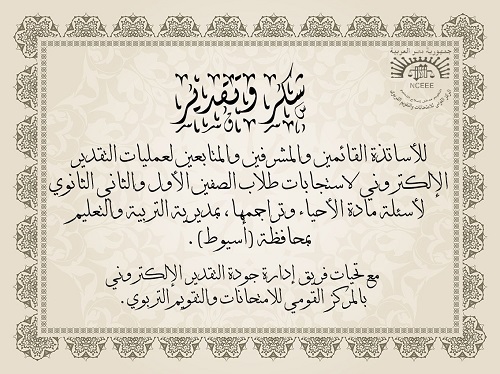 جمهورية مصر العربية
NCEEE
شكر وتقدير
للأساتذة القائمين والمشرفين والمتابعين لعمليات التقدير
الإلكتروني لاستجابات طلاب الصفين الأول والثاني الثانوي
لأسئلة مادة الأحياء وتراجمها، بمديرية التربية والتعليم
بمحافظة (أسيوط).
مع تحيات فريق إدارة جودة التقدير الإلكتروني
بالمركز القومي للامتحانات والتقويم التربوي.